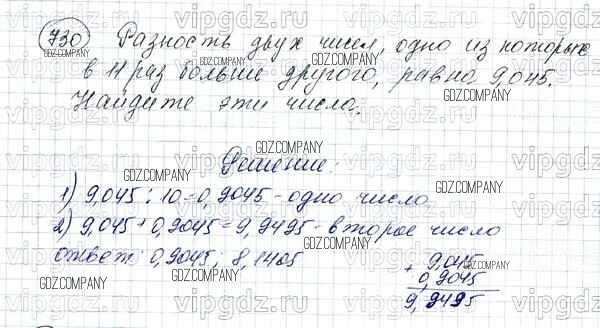 730 Разность двух чисел, одно из которых
в 11 раз больше другого, равна 9,045.
Найдите эти числа.
Решение:
1) 9,045 : 10 = 0,9045 - одно число
2) 9,045 + 0,9045 = 9,9495 - второе число
ответ: 0,9045; 8,1405
9,045
+ 0,9045
9,9495
vipgdz.ru
GDZ.COMPANY